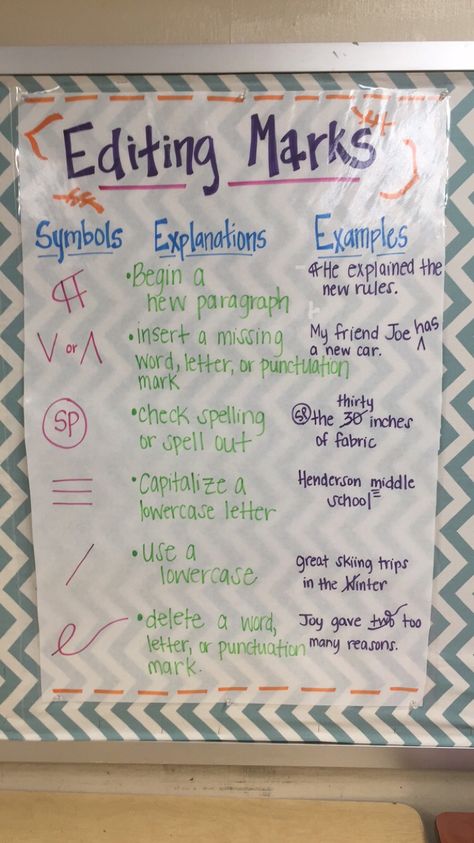 Editing Marks
Symbols Explanations Examples
¶ •Begin a new paragraph
¶He explained the new rules.
V or Λ •insert a missing word, letter, or punctuation mark
My friend Joe has
Λ
a new car.
SP •check spelling or spell out
thirty
SP the 30 inches
of fabric
•Capitalize a lowercase letter
Henderson middle
school
/ •use a lowercase
great skiing trips
in the Winter
•delete a word, letter, or punctuation mark.
Joy gave two too
many reasons.